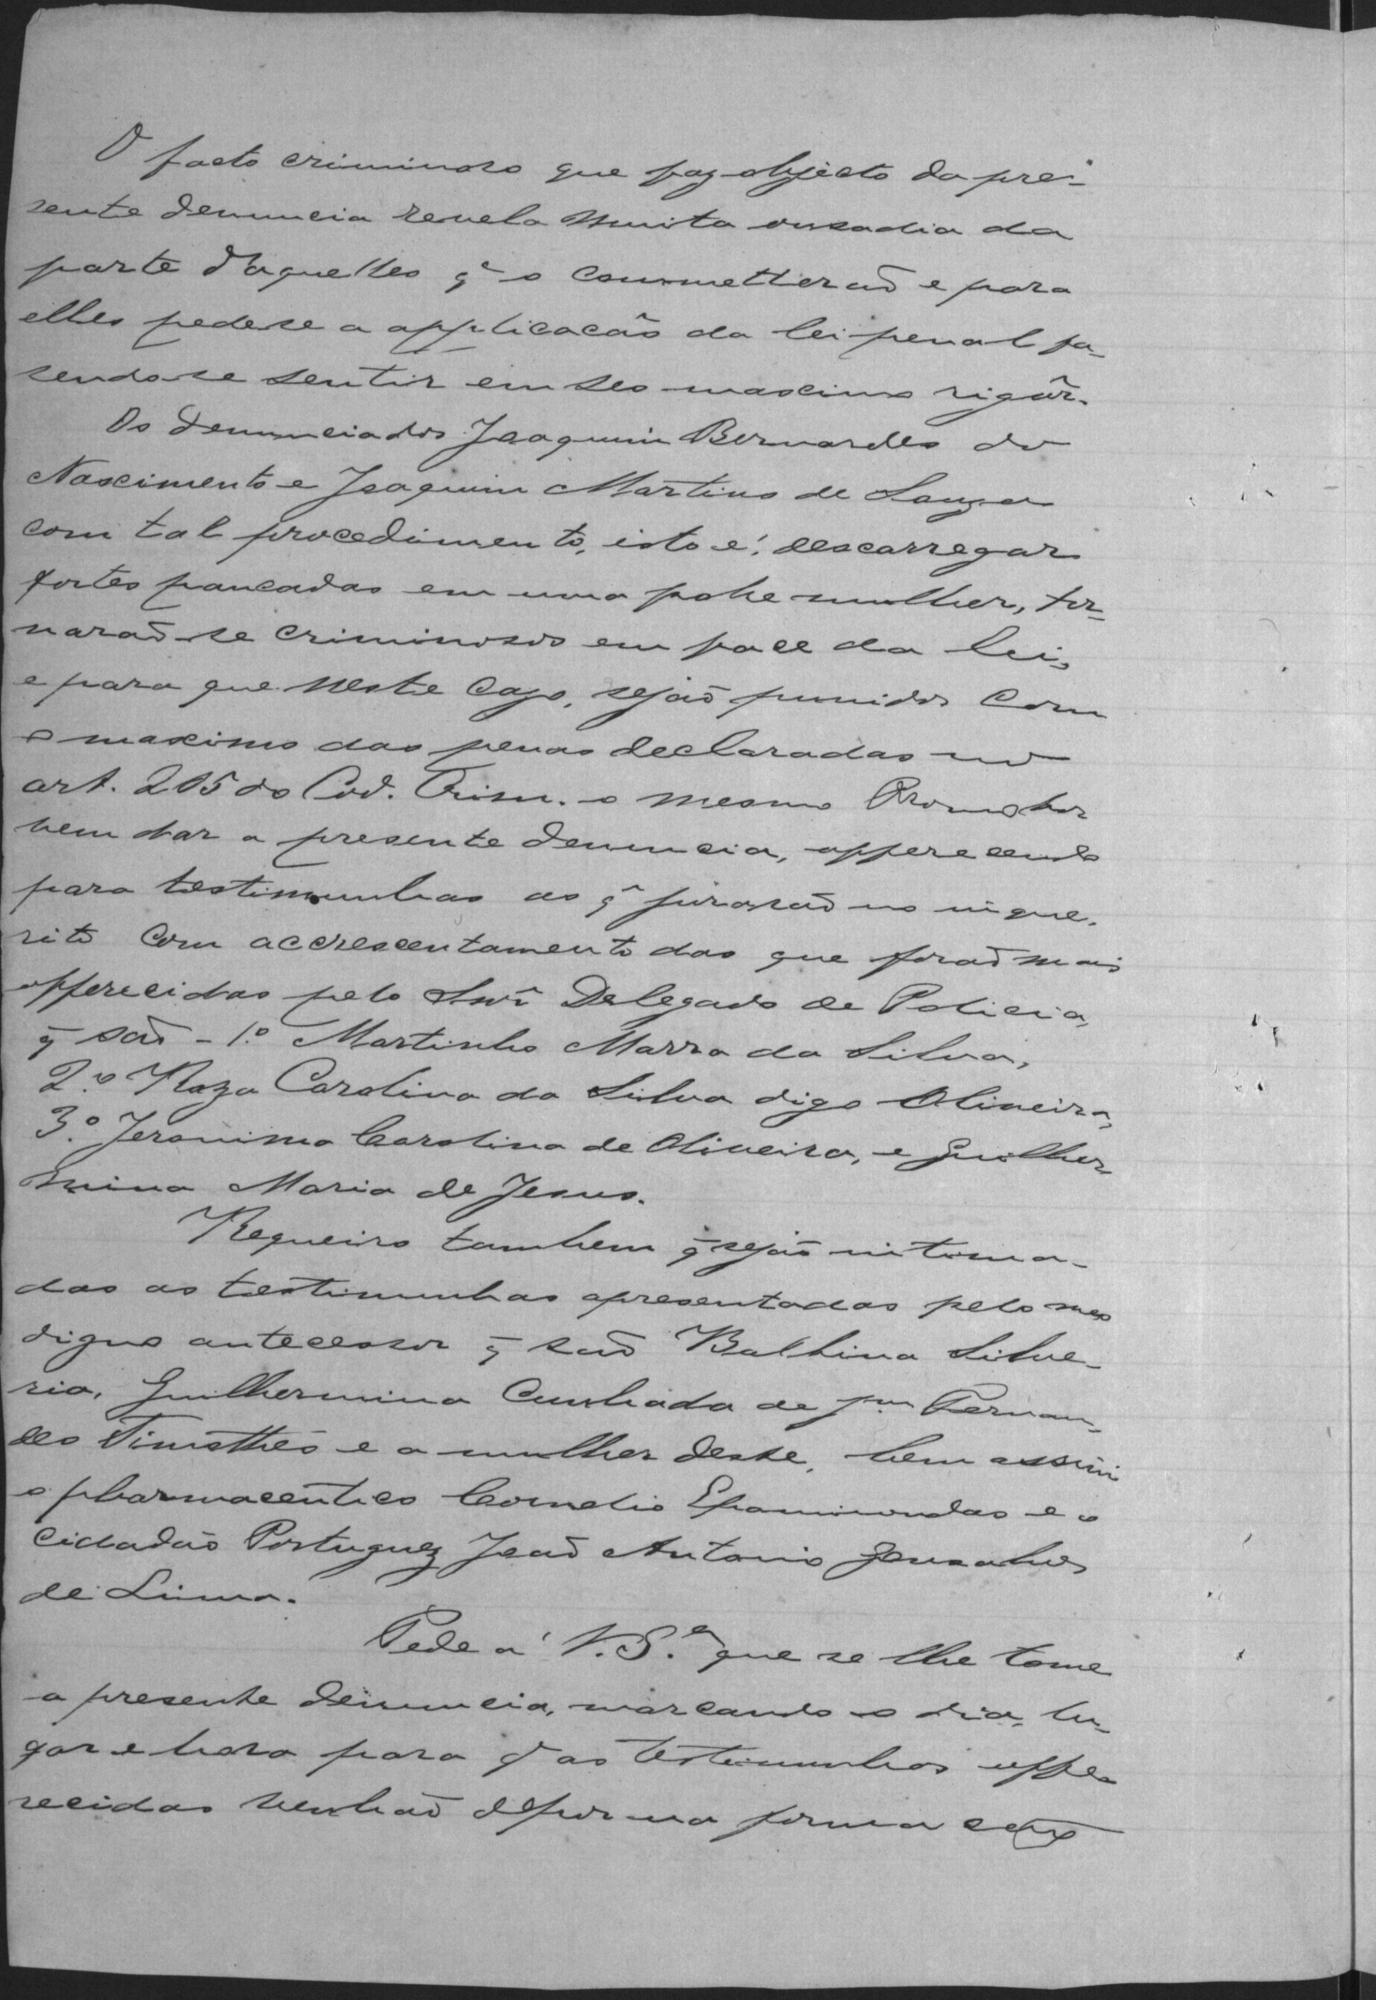 O facto criminoso que faz objecto da pre-
sente denuncia revela muita ousadia da
parte d'aquelles q̃ o commetterão e para
elles pede-se a applicacão da lei penal fa-
sendo-se sentir em seo maximo rigôr.
Os denunciados Joaquim Bernardes do
Nascimento e Joaquim Martins de Souza
com tal procedimento, isto é, descarregar
fortes pancadas em uma pobre mulher, tor-
narão-se criminosos em face da lei,
e para que neste caso, sejão punidos com
o maximo das penas declaradas no
art. 205 do Cod. Crim. o mesmo Promotor
vem dar a presente denuncia, offerecendo
para testimunhas as q̃ jurarão no inque-
rito com accrescentamento das que forão mais
offerecidas pelo Snr̃ Delegado de Policia,
q̃ são - 1.º Martinho Marra da Silva,
2.º Roza Carolina da Silva digo Oliveira,
3.º Jeronima Carolina de Oliveira, e Guilher
mina Maria de Jesus.
Requeiro tambem q̃ sejão intima-
das as testimunhas apresentadas pelo meo
digno antecessor q̃ são Balbina Silve-
ria, Guilhermina Cunhada de Jm Fernan-
des Timothêo e a mulher deste, bem assim
o pharmaceûtico Cornelio Epaminondas e o
cidadão Portuguez João Antonio Gonsalves
de Lima.
Pede a' V. S.ª que se lhe tome
a presente denuncia, marcando o dia, lu-
gar e hora para q̃ as testimunhas offe-
recidas venhão depor na forma